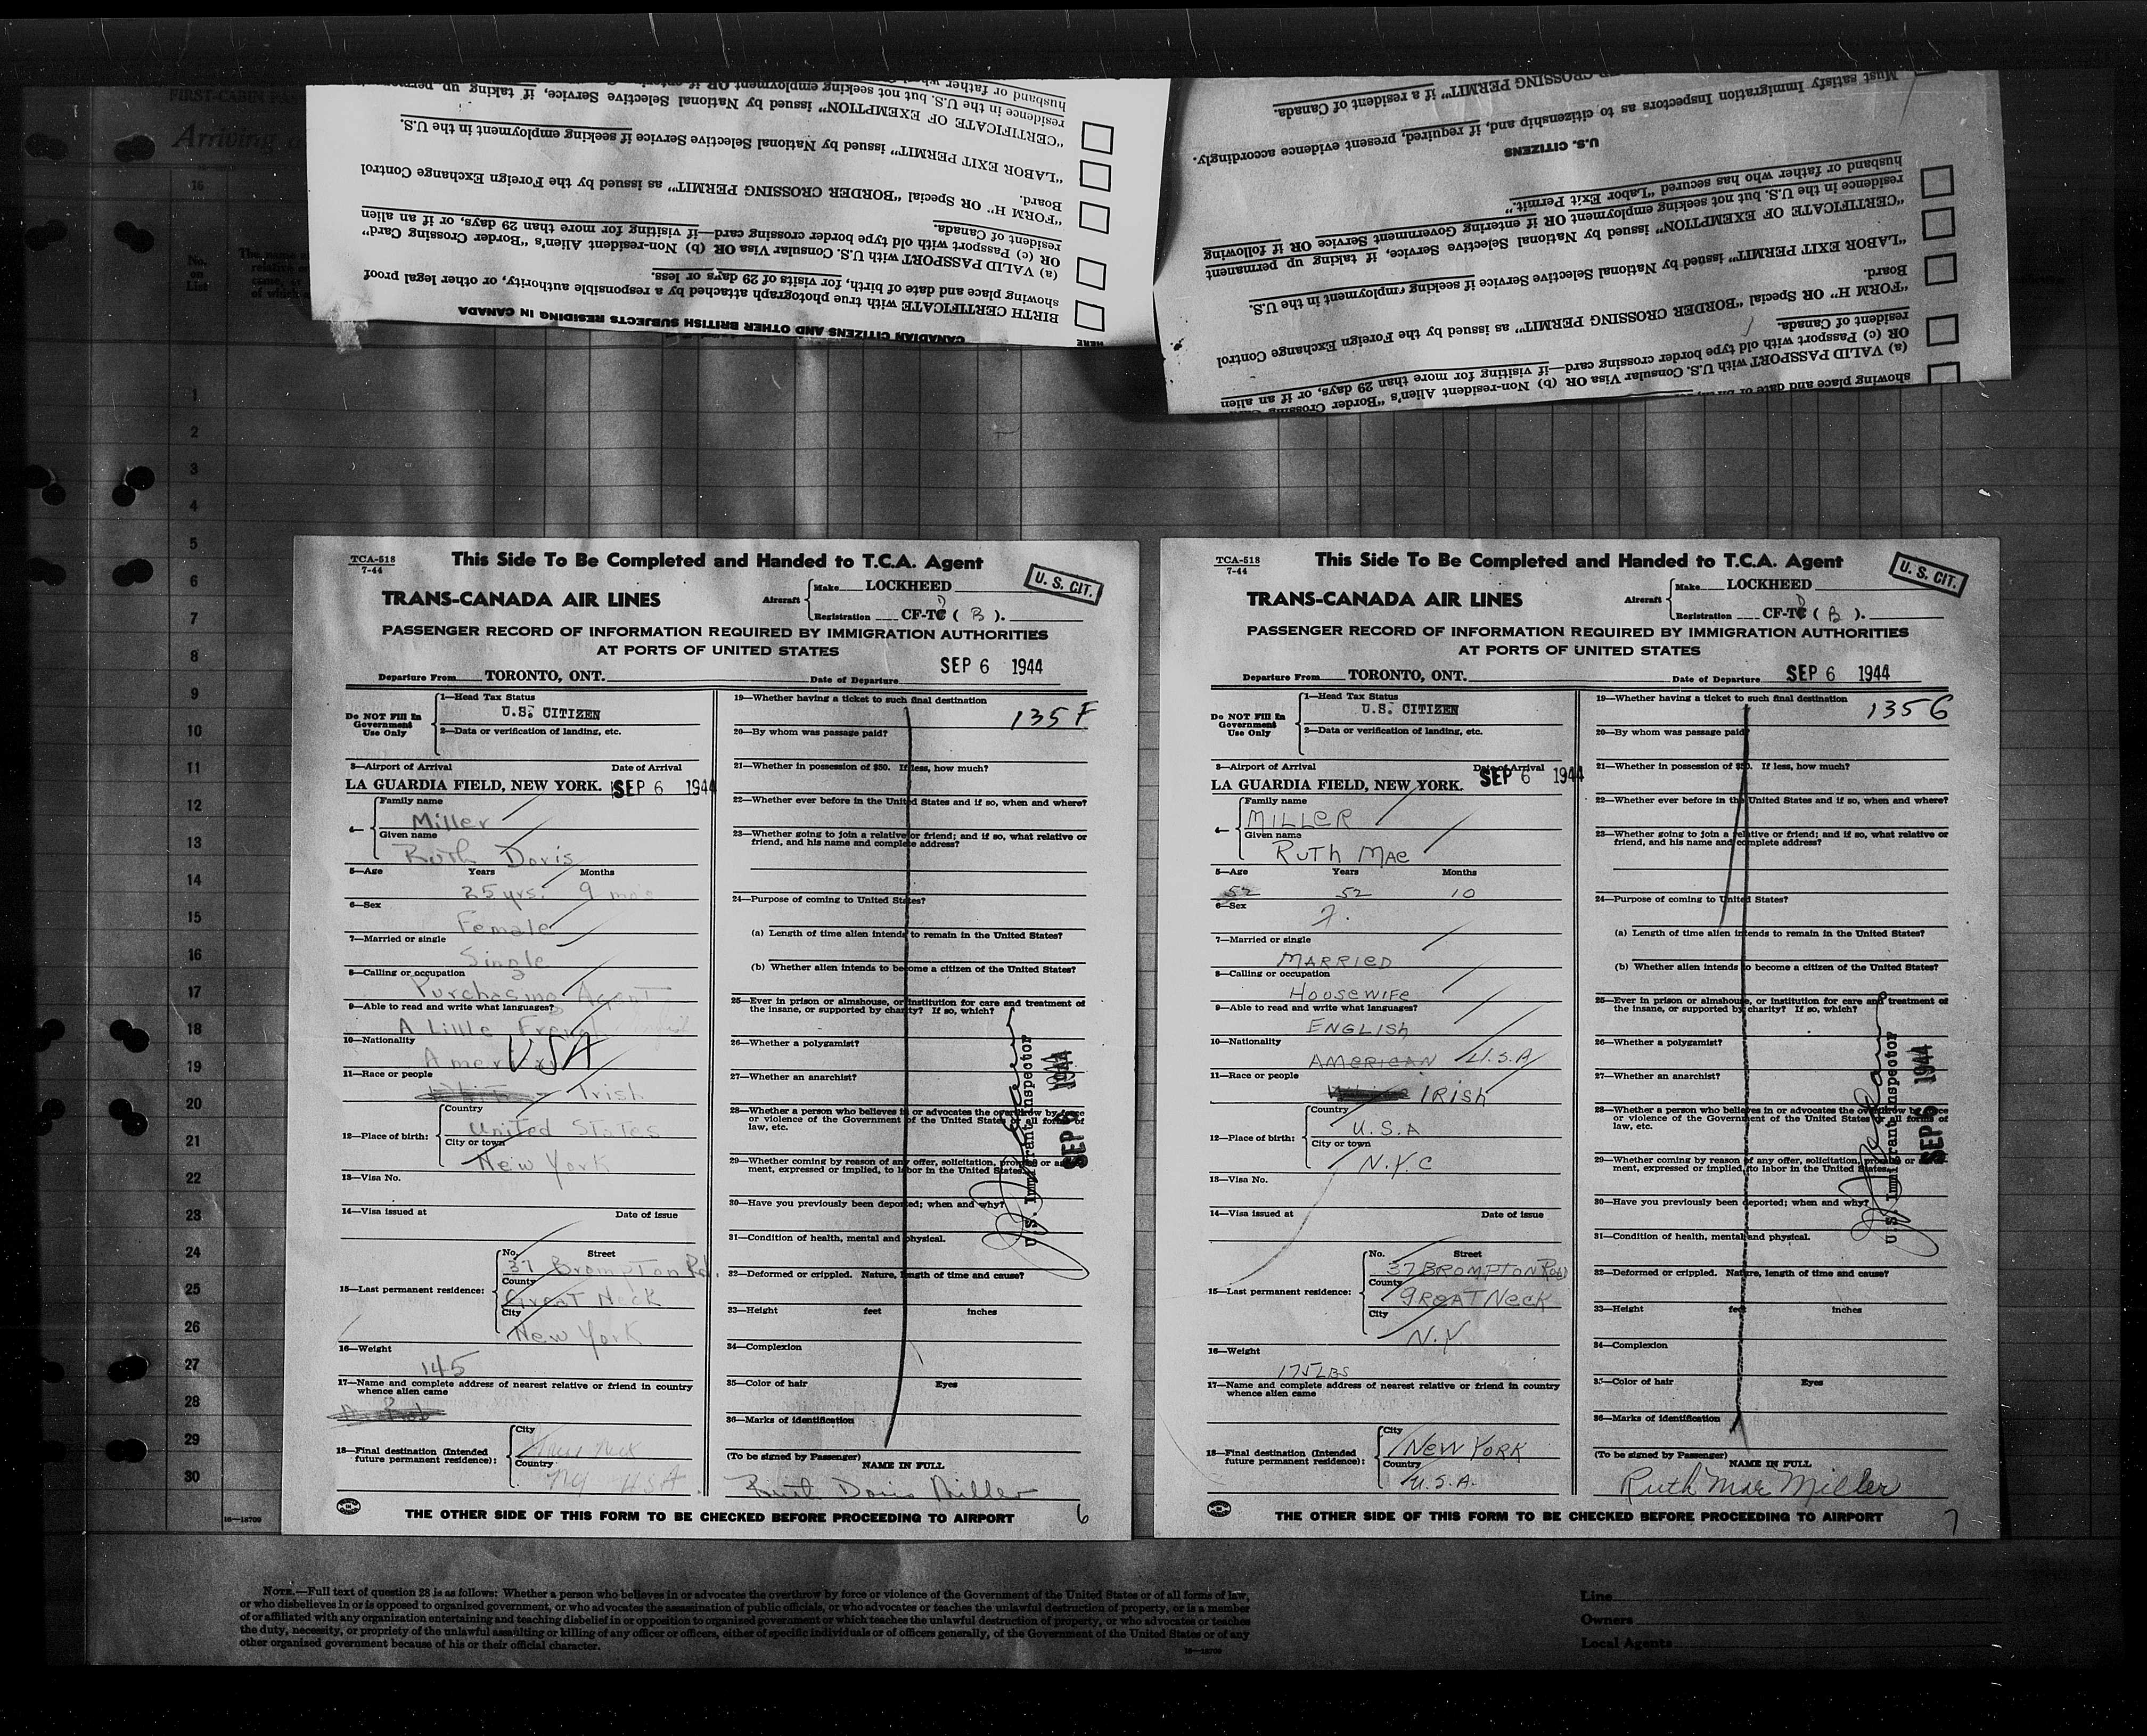 FIRST-CABIN
Arriving
16
No.
on
List
HERE
CANADIAN CITIZENS AND OTHER BRITISH SUBJECTS RESIDING IN CANADA
BIRTH CERTIFICATE with true photograph attached by a responsible authority, or other legal proof
showing place and date of birth, for visits of 29 days or less.
(a) VALID PASSPORT with U.S. Consular Visa OR (b) Non-resident Alien's "Border Crossing Card"
OR (c) Passport with old type border crossing card—if visiting for more than 29 days, or if an alien
resident of Canada.
"FORM H" OR Special "BORDER CROSSING PERMIT" as issued by the Foreign Exchange Control
Board.
"LABOR EXIT PERMIT" issued by National Selective Service if seeking employment in the U.S.
"CERTIFICATE OF EXEMPTION" issued by National Selective Service, if taking up permanent
residence in the U.S. but not seeking employment OR if
husband or father who
showing place and date of
(a) VALID PASSPORT with U.S. Consular Visa OR (b) Non-resident Alien's "Border Crossing
OR (c) Passport with old type border crossing card—if visiting for more than 29 days, or if an alien
resident of Canada.
"FORM H" OR Special "BORDER CROSSING PERMIT" as issued by the Foreign Exchange Control
Board.
"LABOR EXIT PERMIT" issued by National Selective Service if seeking employment in the U.S.
"CERTIFICATE OF EXEMPTION" issued by National Selective Service, if taking up permanent
residence in the U.S. but not seeking employment OR if entering Government Service OR if following
husband or father who has secured "Labor Exit Permit."
U.S. CITIZENS
Must satisfy Immigration Inspectors as to citizenship and, if required, present evidence accordingly.
CROSSING PERMIT" if a resident of Canada.
1
2
3
4
5
6
7
8
9
10
11
12
13
14
15
16
17
18
19
20
21
22
23
24
25
26
27
28
29
30
16—18709
TCA-518
7-44
This Side To Be Completed and Handed to T.C.A. Agent
U. S. CIT.
TRANS-CANADA AIR LINES
Aircraft
Make LOCKHEED
Registration CF-TC D ( B ).
PASSENGER RECORD OF INFORMATION REQUIRED BY IMMIGRATION AUTHORITIES
AT PORTS OF UNITED STATES
Departure From TORONTO, ONT. Date of Departure SEP 6 1944
Do NOT Fill In
Government
Use Only
1—Head Tax Status
U.S. CITIZEN
2—Data or verification of landing, etc.
3—Airport of Arrival Date of Arrival
LA GUARDIA FIELD, NEW YORK. SEP 6 1944
4—
Family name
Miller
Given name
Ruth Doris
5—Age Years Months
25 yrs. 9 mos
6—Sex
Female
7—Married or single
Single
8—Calling or occupation
Purchasing Agent
9—Able to read and write what languages?
A Little French
10—Nationality
American USA
11—Race or people
White Irish
12—Place of birth:
Country
United States
City or town
New York
13—Visa No.
14—Visa issued at Date of issue
15—Last permanent residence:
No. Street
37 Brompton Rd.
County
Great Neck
City
New York
16—Weight
145
17—Name and complete address of nearest relative or friend in country
whence alien came
18—Final destination (Intended
future permanent residence):
City
Great Neck
Country
NY USA.
19—Whether having a ticket to such final destination
135 F
20—By whom was passage paid?
21—Whether in possession of $50. If less, how much?
22—Whether ever before in the United States and if so, when and where?
23—Whether going to join a relative or friend; and if so, what relative or
friend, and his name and complete address?
24—Purpose of coming to United States?
(a) Length of time alien intends to remain in the United States?
(b) Whether alien intends to become a citizen of the United States?
25—Ever in prison or almshouse, or institution for care and treatment of
the insane, or supported by charity? If so, which?
26—Whether a polygamist?
27—Whether an anarchist?
28—Whether a person who believes in or advocates the overthrow by force
or violence of the Government of the United States or all forms of
law, etc.
29—Whether coming by reason of any offer, solicitation, promise or agree-
ment, expressed or implied, to labor in the United States
30—Have you previously been deported; when and why?
31—Condition of health, mental and physical.
32—Deformed or crippled. Nature, length of time and cause?
33—Height feet inches
34—Complexion
35—Color of hair Eyes
36—Marks of identification
U.S. Immigrant Inspector
SEP 6 1944
(To be signed by Passenger)
NAME IN FULL
Ruth Doris Miller
THE OTHER SIDE OF THIS FORM TO BE CHECKED BEFORE PROCEEDING TO AIRPORT
6
TCA-518
7-44
This Side To Be Completed and Handed to T.C.A. Agent
U. S. CIT.
TRANS-CANADA AIR LINES
Aircraft
Make LOCKHEED
Registration CF-TC D ( B ).
PASSENGER RECORD OF INFORMATION REQUIRED BY IMMIGRATION AUTHORITIES
AT PORTS OF UNITED STATES
Departure From TORONTO, ONT. Date of Departure SEP 6 1944
Do NOT Fill In
Government
Use Only
1—Head Tax Status
U.S. CITIZEN
2—Data or verification of landing, etc.
3—Airport of Arrival Date of Arrival
LA GUARDIA FIELD, NEW YORK. SEP 6 1944
4—
Family name
MILLER
Given name
RUTH MAE
5—Age Years Months
52 52 10
6—Sex
F.
7—Married or single
MARRIED
8—Calling or occupation
HOUSEWIFE
9—Able to read and write what languages?
ENGLISH
10—Nationality
AMERICAN U.S.A
11—Race or people
White IRISH
12—Place of birth:
Country
U.S.A
City or town
N.Y.C
13—Visa No.
14—Visa issued at Date of issue
15—Last permanent residence:
No. Street
37 BROMPTON Road
County
GREAT NECK
City
N.Y.
16—Weight
175 LBS
17—Name and complete address of nearest relative or friend in country
whence alien came
18—Final destination (Intended
future permanent residence):
City
NEW YORK
Country
U.S.A.
19—Whether having a ticket to such final destination
135 G
20—By whom was passage paid?
21—Whether in possession of $50. If less, how much?
22—Whether ever before in the United States and if so, when and where?
23—Whether going to join a relative or friend; and if so, what relative or
friend, and his name and complete address?
24—Purpose of coming to United States?
(a) Length of time alien intends to remain in the United States?
(b) Whether alien intends to become a citizen of the United States?
25—Ever in prison or almshouse, or institution for care and treatment of
the insane, or supported by charity? If so, which?
26—Whether a polygamist?
27—Whether an anarchist?
28—Whether a person who believes in or advocates the overthrow by force
or violence of the Government of the United States or all forms of
law, etc.
29—Whether coming by reason of any offer, solicitation, promise or
ment, expressed or implied, to labor in the United States
30—Have you previously been deported; when and why?
31—Condition of health, mental and physical.
32—Deformed or crippled. Nature, length of time and cause?
33—Height feet inches
34—Complexion
35—Color of hair Eyes
36—Marks of identification
U.S. Immigrant Inspector
SEP 6 1944
(To be signed by Passenger)
NAME IN FULL
Ruth Mae Miller
THE OTHER SIDE OF THIS FORM TO BE CHECKED BEFORE PROCEEDING TO AIRPORT
7
NOTE.—Full text of question 28 is as follows: Whether a person who believes in or advocates the overthrow by force or violence of the Government of the United States or of all forms of law,
or who disbelieves in or is opposed to organized government, or who advocates the assassination of public officials, or who advocates or teaches the unlawful destruction of property, or is a member
of or affiliated with any organization entertaining and teaching disbelief in or opposition to organized government or which teaches the unlawful destruction of property, or who advocates or teaches
the duty, necessity, or propriety of the unlawful assaulting or killing of any officer or officers, either of specific individuals or of officers generally, of the Government of the United States or of any
other organized government because of his or their official character.
16—18709
Line
Owners
Local Agents